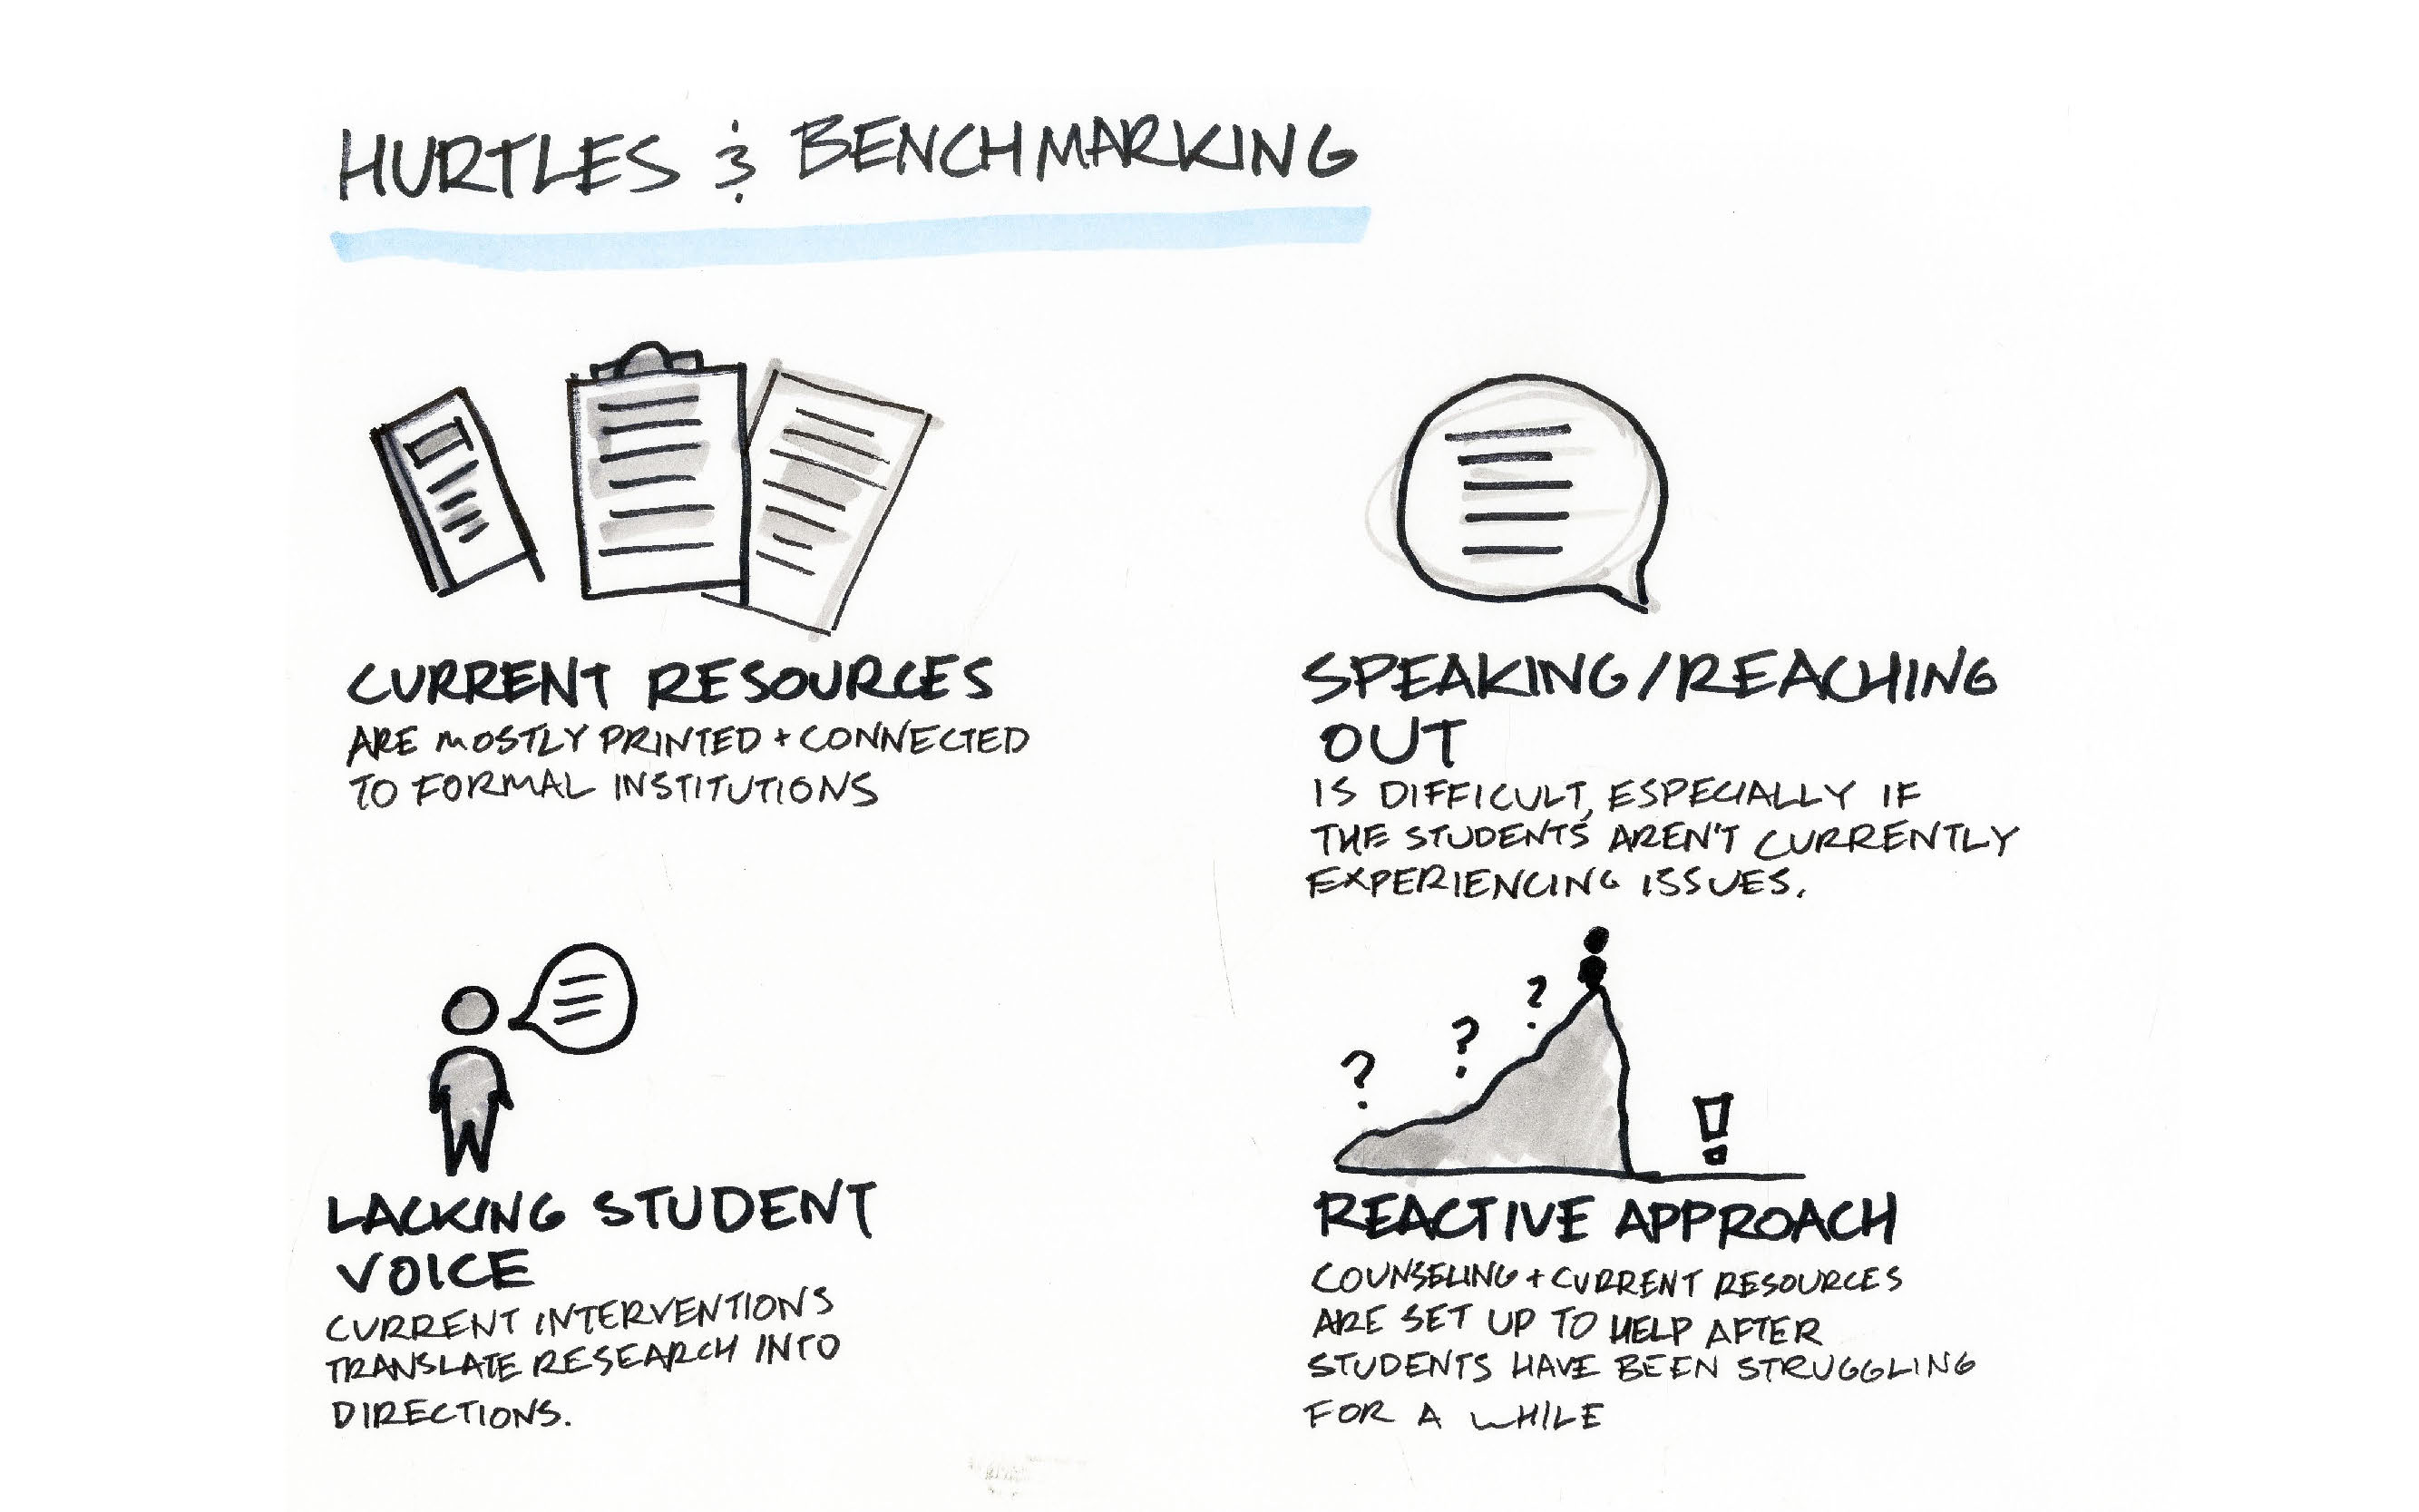 HURTLES & BENCHMARKING
CURRENT RESOURCES
ARE MOSTLY PRINTED + CONNECTED
TO FORMAL INSTITUTIONS
SPEAKING/REACHING
OUT
IS DIFFICULT, ESPECIALLY IF
THE STUDENTS AREN'T CURRENTLY
EXPERIENCING ISSUES.
LACKING STUDENT
VOICE
CURRENT INTERVENTIONS
TRANSLATE RESEARCH INTO
DIRECTIONS.
? ? ? !
REACTIVE APPROACH
COUNSELING + CURRENT RESOURCES
ARE SET UP TO HELP AFTER
STUDENTS HAVE BEEN STRUGGLING
FOR A WHILE